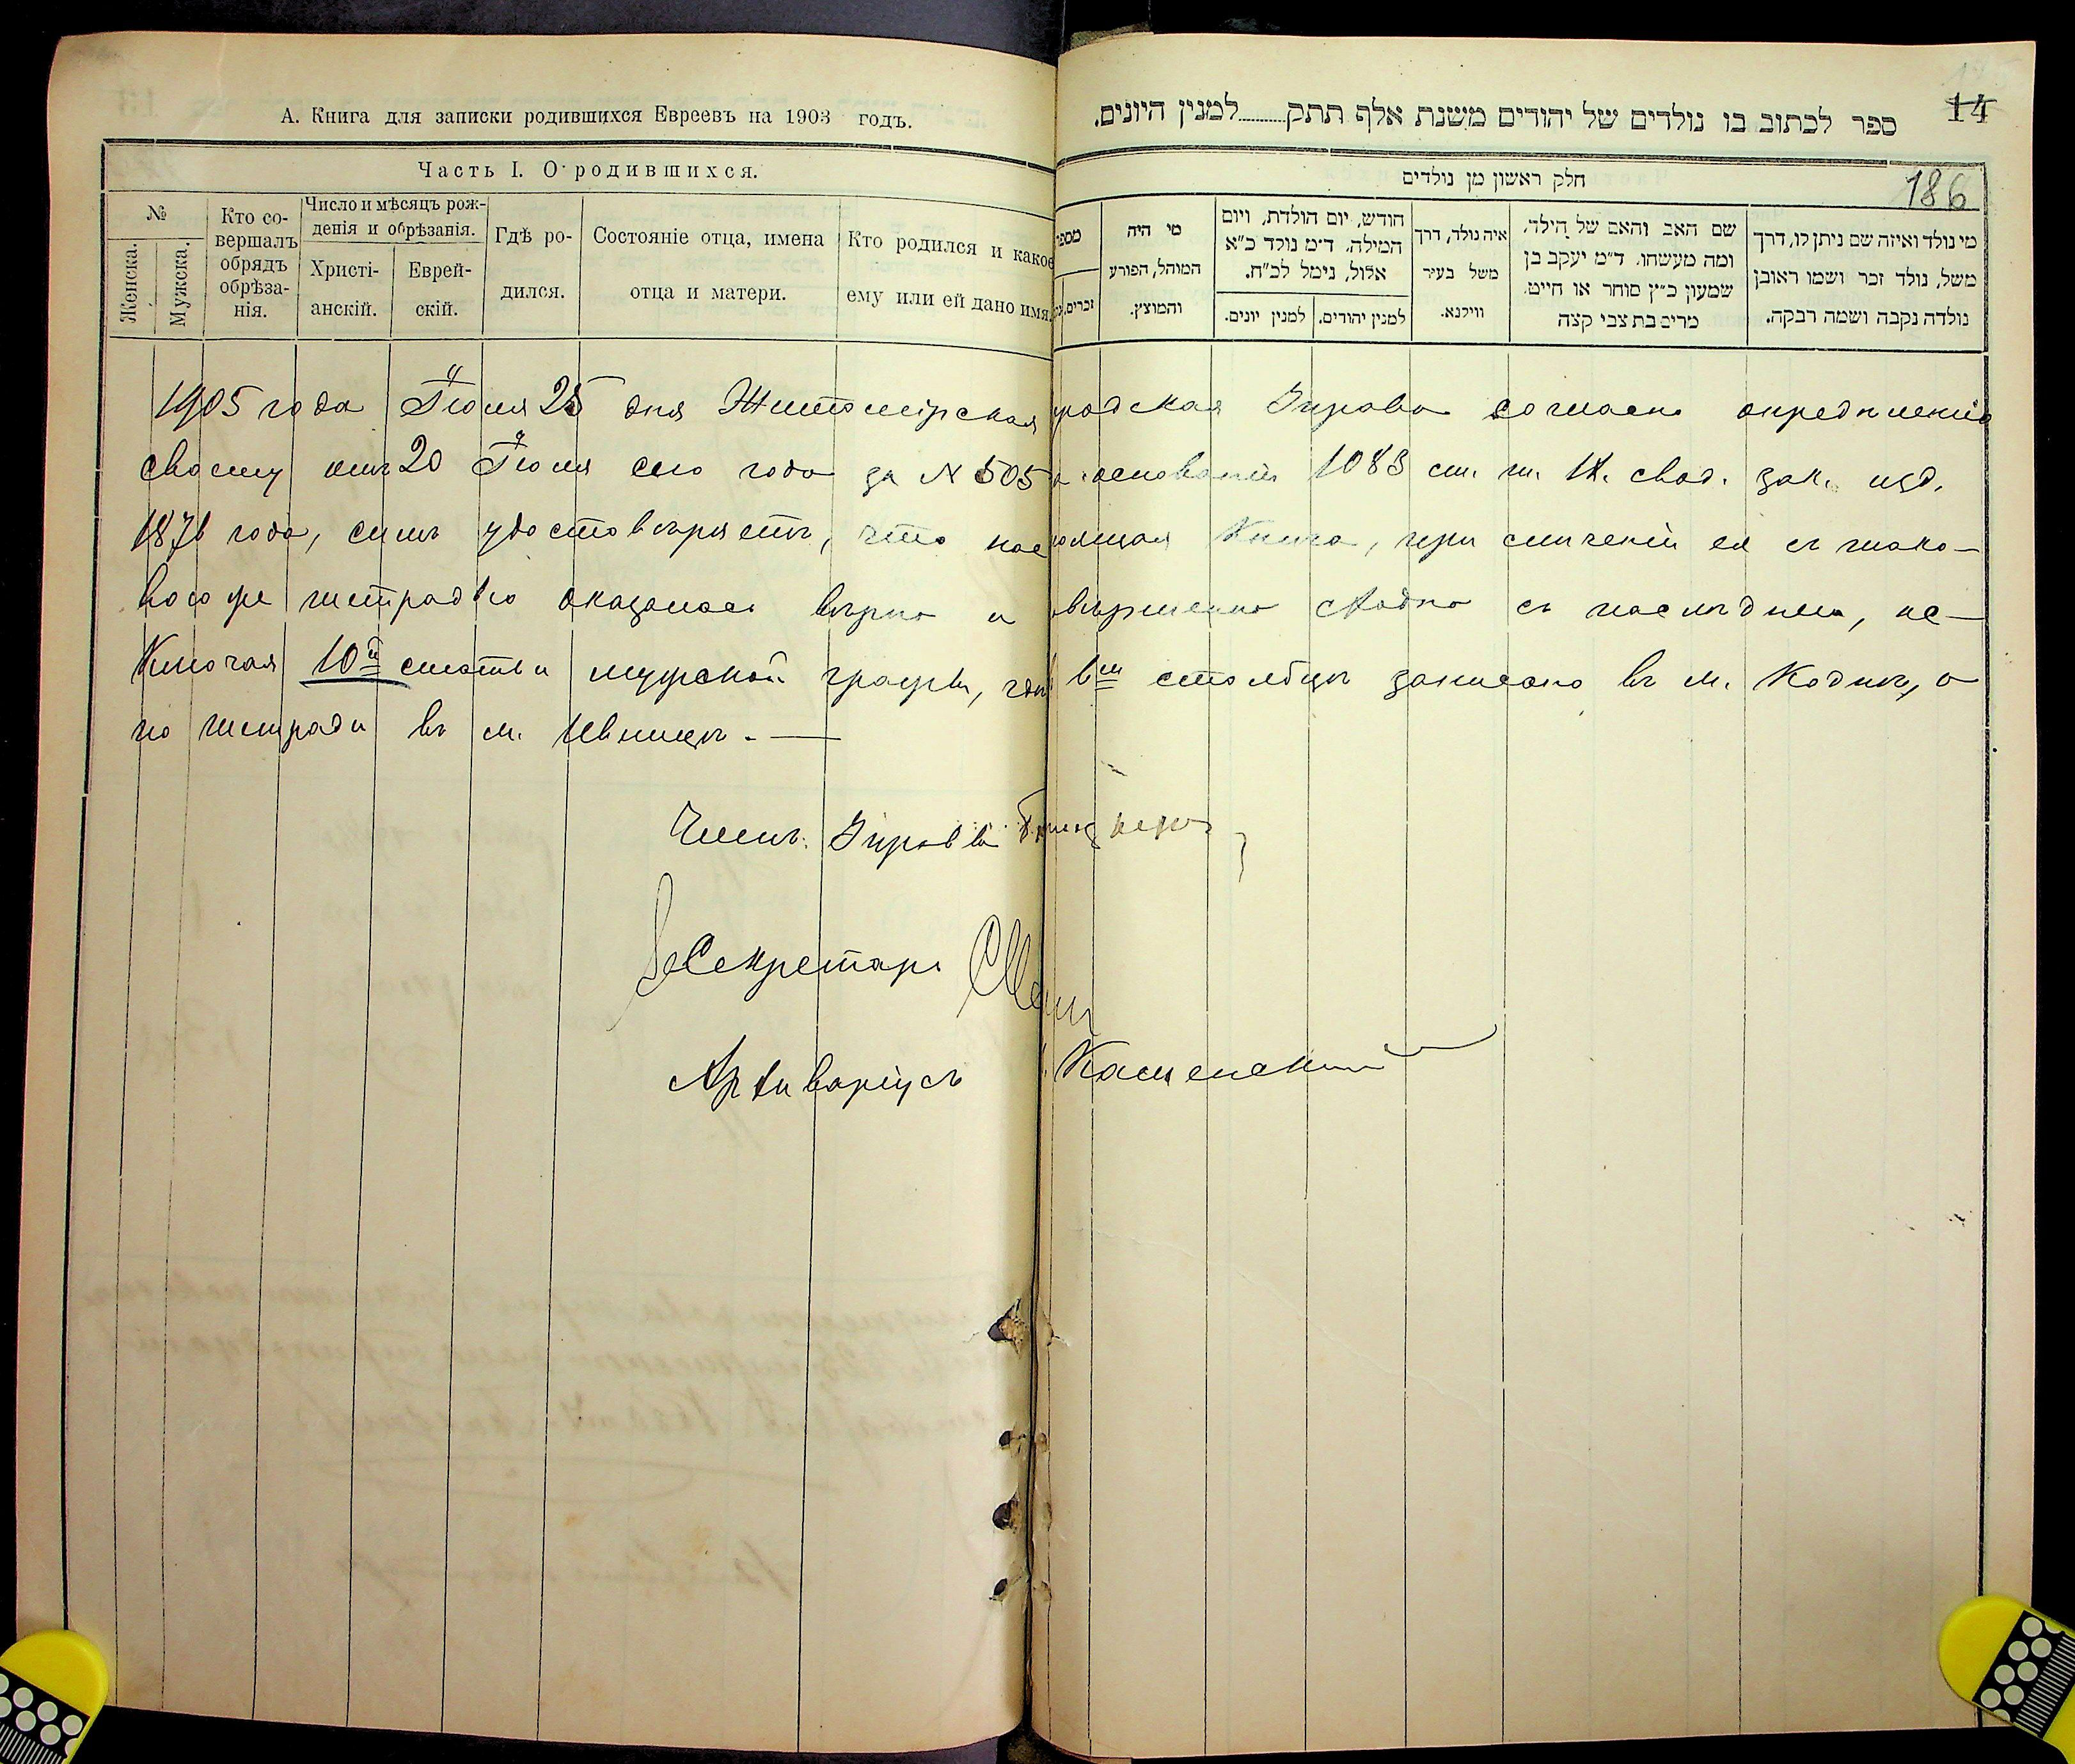 А. Книга для записки родившихся Евреевъ на 1903 годъ.
Часть I. О родившихся.
№
Женска.
Мужска.
Кто со-
вершалъ
обрядъ
обрѣза-
нія.
Число и мѣсяцъ рож-
денія и обрѣзанія.
Христі-
анскій.
Еврей-
скій.
Гдѣ ро-
дился.
Состояніе отца, имена
отца и матери.
Кто родился и какое
ему или ей дано имя.
14
ספר לכתוב בו נולדים של יהודים משנת אלף תתק........למנין היונים.
חלק ראשון מן נולדים
186
מי נולד ואיזה שם ניתן לו, דרך
משל, נולד זכר ושמו ראובן
נולדה נקבה ושמה רבקה.
שם האב והאם של הילד,
ומה מעשהו. ד״מ יעקב בן
שמעון כ״ץ סוחר או חייט,
מרים בת צבי קצה
איה נולד, דרך
משל בעיר
ווילנא.
חודש, יום הולדת, ויום
המילה. ד״מ נולד כ״א
אלול, נימל לכ״ח.
למנין יהודים.
למנין יונים.
מי היה
המוהל, הפורע
והמוצץ.
מספר
זכרים.
1905 года Іюля 25 дня Житомірская родская Управа согласно опредѣленію
своему отъ 20 Іюля сего года за № 505 основаніи 1083 ст. т. IX. свод. зак. изд.
1876 года, симъ удостовѣряетъ, что настоящая Книга, при сличеніи ея съ тако-
вою же тетрадью оказалась вѣрно и совершенно сходно съ послѣднею, ис-
ключая 10й статьи мужской графы, гдѣ въ столбцѣ записано въ м. Коднѣ, а
по тетради въ м. Ивницѣ. —
Членъ Управы
Секретарь
Архиваріусъ Каменскій